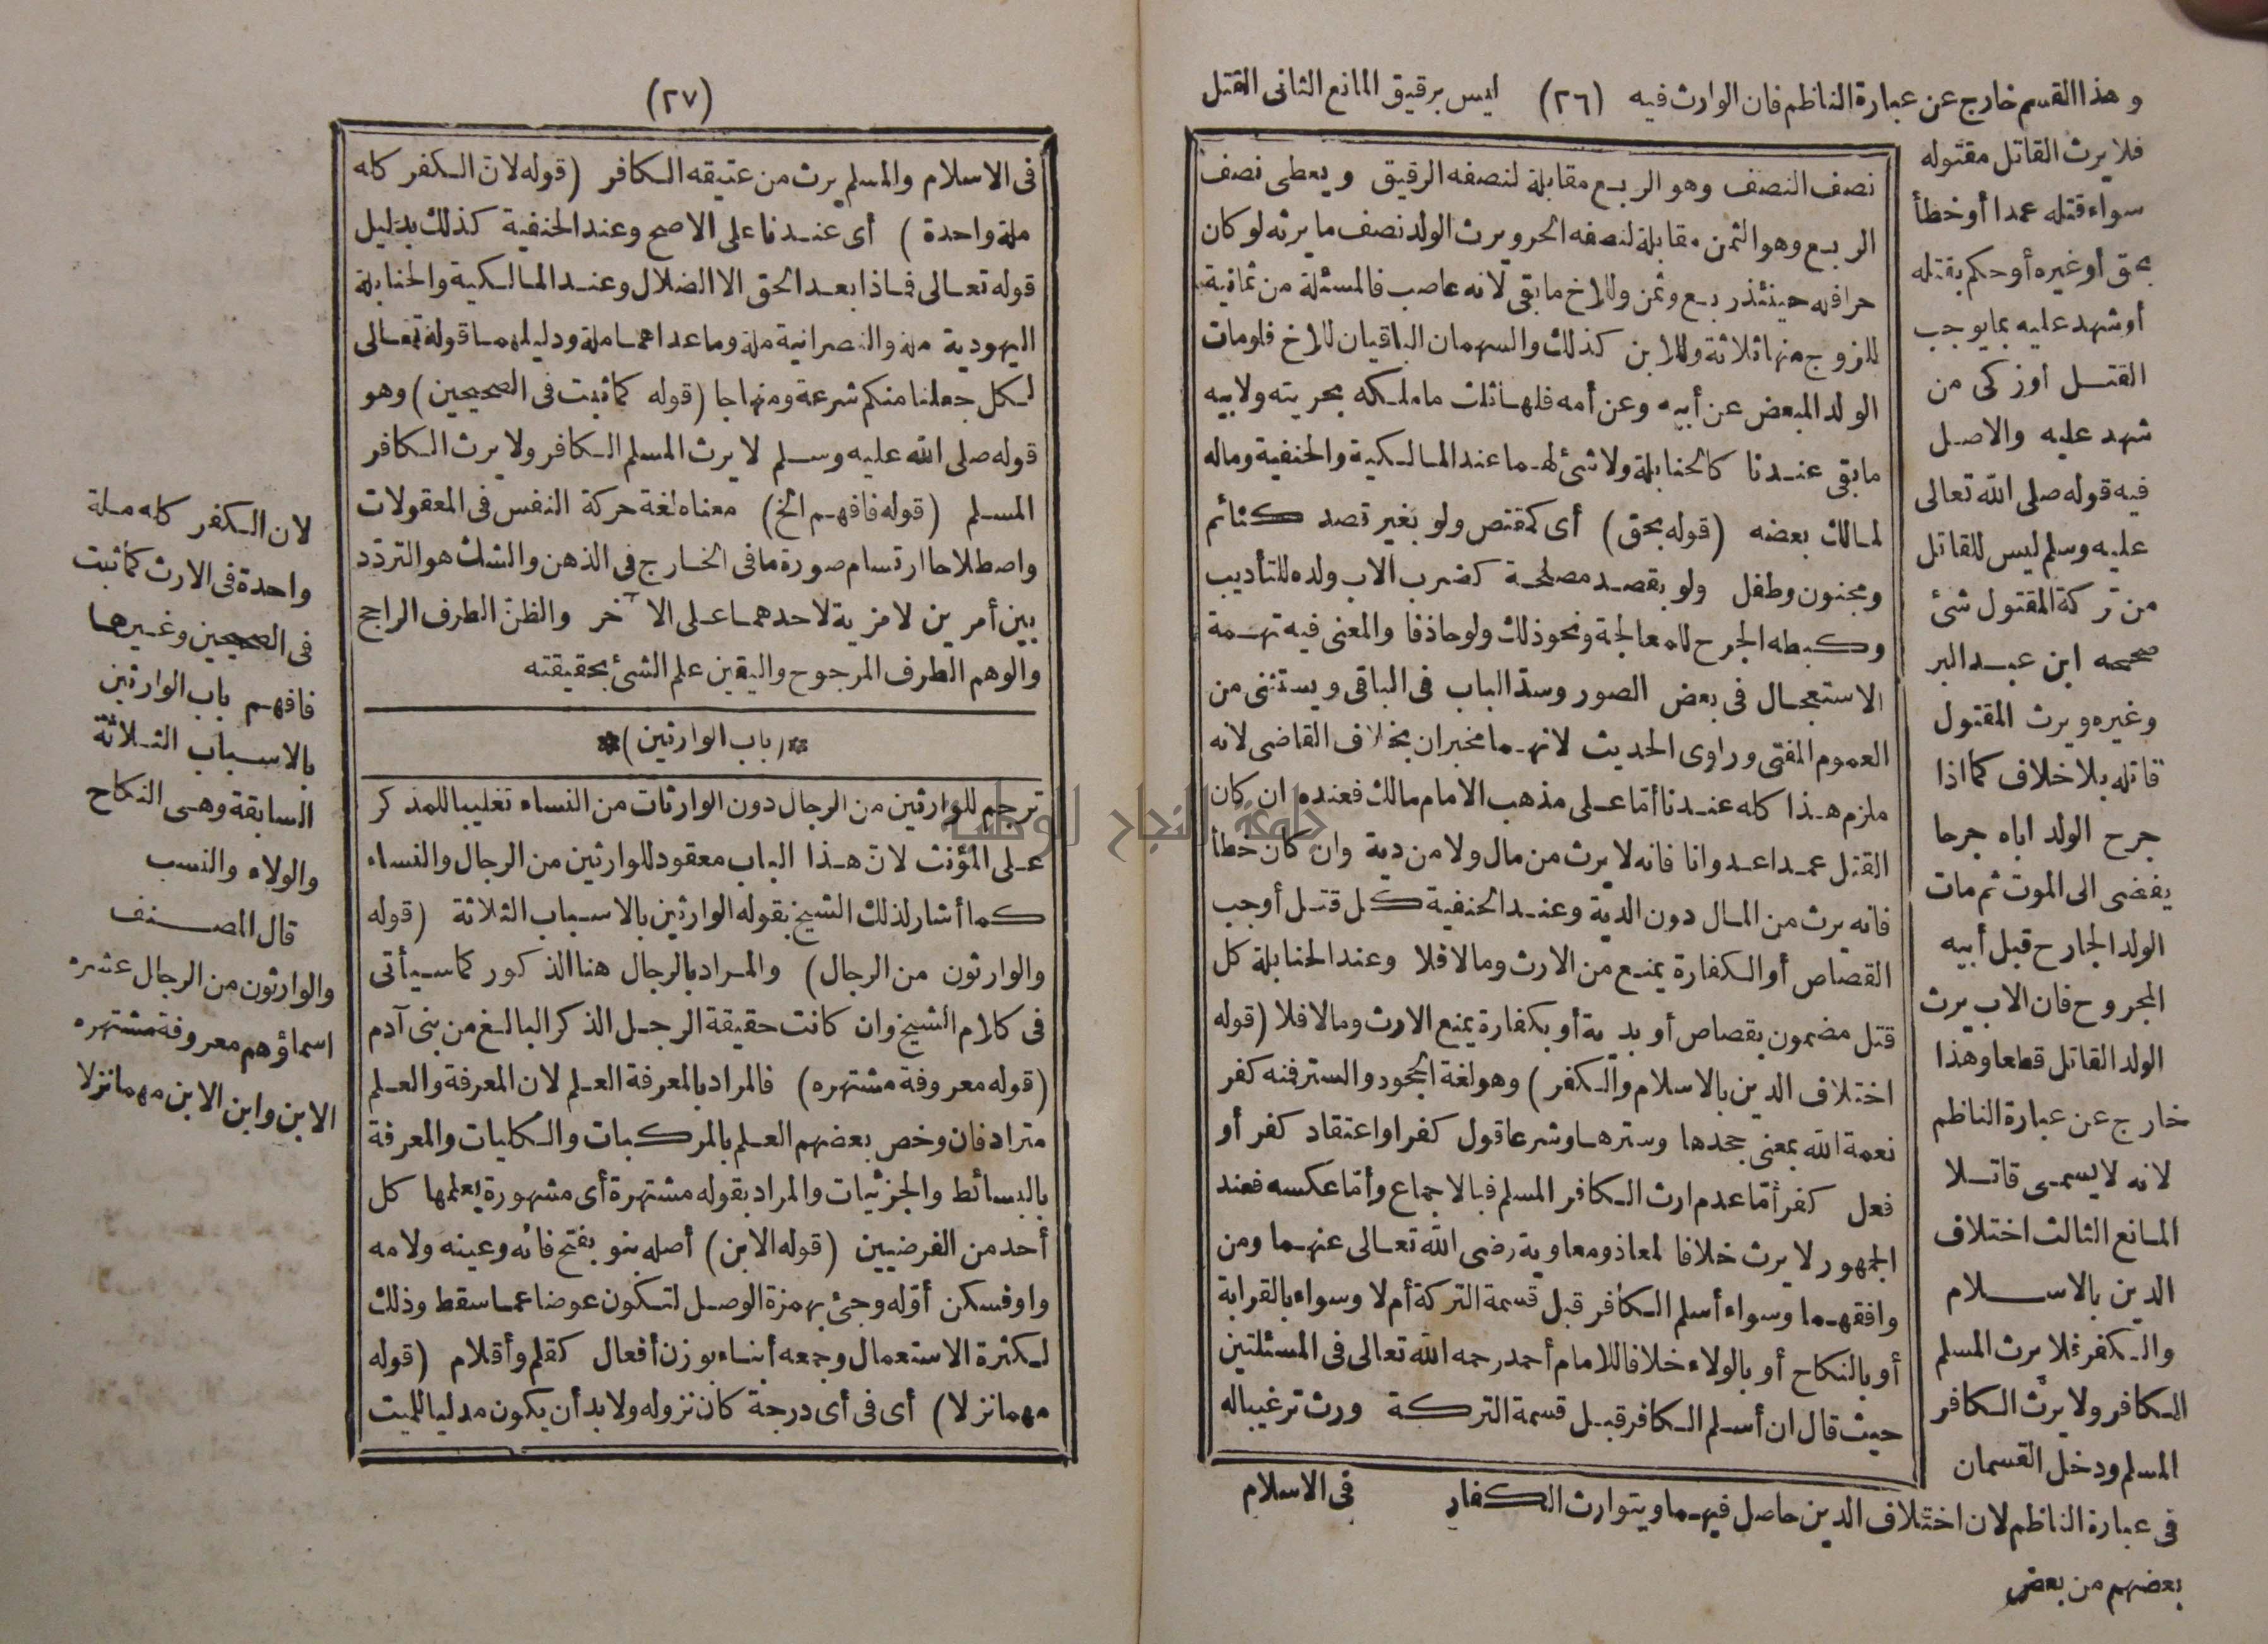 وهذا القسم خارج عن عبارة الناظم فان الوارث فيه (٢٦) ليس برقيق المانع الثانى القتل
فلا يرث القاتل مقتوله
سواء قتله عمدا أو خطأ
بحق أو غيره أو حكم بقتله
أو شهد عليه بما يوجب
القتل أو زكى من
شهد عليه والاصل
فيه قوله صلى الله تعالى
عليه وسلم ليس للقاتل
من تركة المقتول شئ
صححه ابن عبد البر
وغيره ويرث المقتول
قاتله بلا خلاف كما اذا
جرح الولد اباه جرحا
يفضى الى الموت ثم مات
الولد الجارح قبل أبيه
المجروح فان الاب يرث
الولد القاتل قطعا وهذا
خارج عن عبارة الناظم
لانه لا يسمى قاتلا
المانع الثالث اختلاف
الدين بالاسلام
والكفر فلا يرث المسلم
الكافر ولا يرث الكافر
المسلم ودخل القسمان
فى عبارة الناظم لان اختلاف الدين حاصل فيهما ويتوارث الكفار
بعضهم من بعض
نصف النصف وهو الربع مقابلة لنصفه الرقيق ويعطى نصف
الربع وهو الثمن مقابلة لنصفه الحر ويرث الولد نصف ما يرثه لو كان
حرا فله حينئذ ربع وثمن وللاخ ما بقى لانه عاصب فالمسئلة من ثمانية
للزوج منها ثلاثة وللابن كذلك والسهمان الباقيان للاخ فلو مات
الولد المبعض عن أبيه وعن أمه فلها ثلث ما ملكه بحريته ولابيه
ما بقى عندنا كالحنابلة ولا شئ لهما عند المالكية والحنفية وماله
لمالك بعضه (قوله بحق) أى كمقتص ولو بغير قصد كنائم
ومجنون وطفل ولو بقصد مصلحة كضرب الاب ولده للتأديب
وكبطه الجرح للمعالجة ونحو ذلك ولو حاذقا والمعنى فيه تهمة
الاستعجال فى بعض الصور وسد الباب فى الباقى ويستثنى من
العموم المفتى وراوى الحديث لانهما مخبران بخلاف القاضى لانه
ملزم هذا كله عندنا أما على مذهب الامام مالك فعنده ان كان
القتل عمدا عدوانا فانه لا يرث من مال ولا من دية وان كان خطأ
فانه يرث من المال دون الدية وعند الحنفية كل قتل أوجب
القصاص أو الكفارة يمنع من الارث وما لا فلا وعند الحنابلة كل
قتل مضمون بقصاص أو بدية أو بكفارة يمنع الارث وما لا فلا (قوله
اختلاف الدين بالاسلام والكفر) وهو لغة الجحود والستر فنه كفر
نعمة الله بمعنى جحدها وسترها وشرعا قول كفر او اعتقاد كفر أو
فعل كفر أما عدم ارث الكافر المسلم فبالاجماع وأما عكسه فعند
الجمهور لا يرث خلافا لمعاذ ومعاوية رضى الله تعالى عنهما ومن
وافقهما وسواء أسلم الكافر قبل قسمة التركة أم لا وسواء بالقرابة
أو بالنكاح أو بالولاء خلافا للامام أحمد رحمه الله تعالى فى المسئلتين
حيث قال ان أسلم الكافر قبل قسمة التركة ورث ترغيبا له
فى الاسلام
(٢٧)
فى الاسلام والمسلم يرث من عتيقه الكافر (قوله لان الكفر كله
ملة واحدة) أى عندنا على الاصح وعند الحنفية كذلك بدليل
قوله تعالى فماذا بعد الحق الا الضلال وعند المالكية والحنابلة
اليهودية ملة والنصرانية ملة وما عداهما ملة ودليلهما قوله تعالى
لكل جعلنا منكم شرعة ومنهاجا (قوله كما ثبت فى الصحيحين) وهو
قوله صلى الله عليه وسلم لا يرث المسلم الكافر ولا يرث الكافر
المسلم (قوله فافهم الخ) معناه لغة حركة النفس فى المعقولات
واصطلاحا ارتسام صورة ما فى الخارج فى الذهن والشك هو التردد
بين أمرين لا مزية لاحدهما على الآخر والظن الطرف الراجح
والوهم الطرف المرجوح واليقين علم الشئ بحقيقته
*(باب الوارثين)*
ترجم للوارثين من الرجال دون الوارثات من النساء تغليبا للمذكر
على المؤنث لان هذا الباب معقود للوارثين من الرجال والنساء
كما أشار لذلك الشيخ بقوله الوارثين بالاسباب الثلاثة (قوله
والوارثون من الرجال) والمراد بالرجال هنا الذكور كما سيأتى
فى كلام الشيخ وان كانت حقيقة الرجل الذكر البالغ من بنى آدم
(قوله معروفة مشتهره) فالمراد بالمعرفة العلم لان المعرفة والعلم
مترادفان وخص بعضهم العلم بالمركبات والكليات والمعرفة
بالبسائط والجزئيات والمراد بقوله مشتهرة أى مشهورة يعلمها كل
أحد من الفرضيين (قوله الابن) أصله بنو بفتح فائه وعينه ولامه
واو فسكن أوله وجئ بهمزة الوصل لتكون عوضا عما سقط وذلك
لكثرة الاستعمال وجمعه أبناء بوزن أفعال كقلم وأقلام (قوله
مهما نزلا) أى فى أى درجة كان نزوله ولا بد أن يكون مدليا للميت
لان الكفر كله ملة
واحدة فى الارث كما ثبت
فى الصحيحين وغيرها
فافهم باب الوارثين
بالاسباب الثلاثة
السابقة وهى النكاح
والولاء والنسب
قال المصنف
والوارثون من الرجال عشره
اسماؤهم معروفة مشتهره
الابن وابن الابن مهما نزلا
جامعة النجاح الوطنية